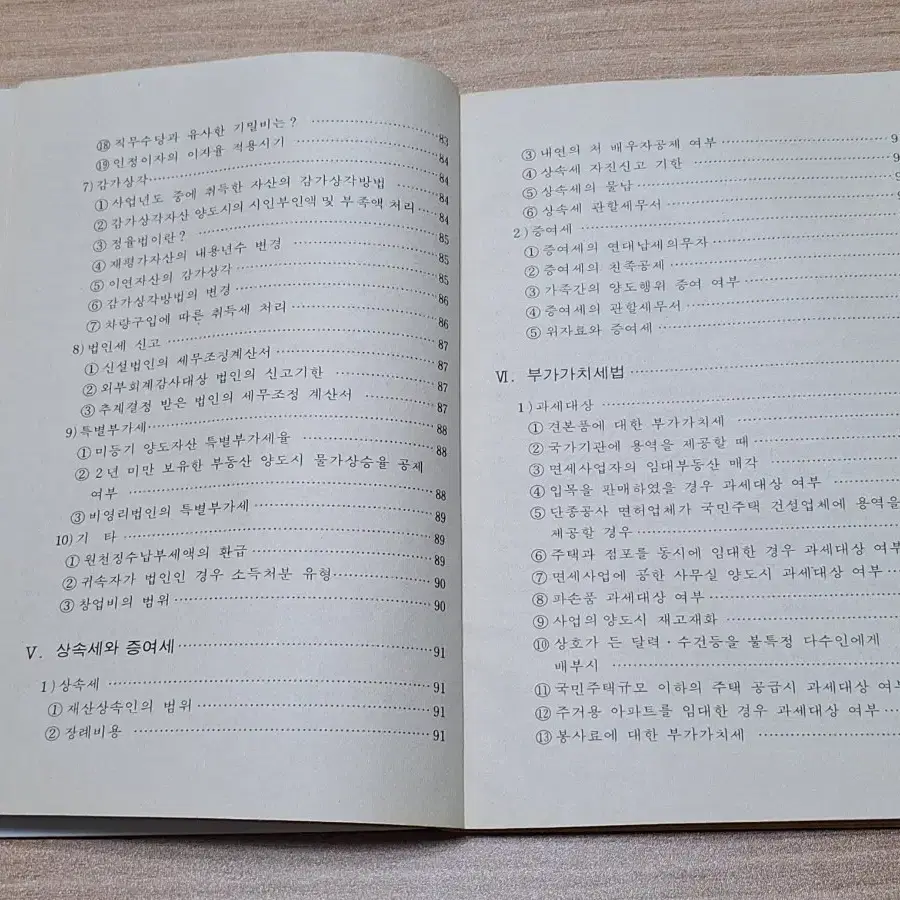 ⑱ 직무수당과 유사한 기밀비는? 83
⑲ 인정이자의 이자율 적용시기 84
7) 감가상각 84
① 사업년도 중에 취득한 자산의 감가상각방법 84
② 감가상각자산 양도시의 시인부인액 및 부족액 처리 84
③ 정율법이란? 85
④ 재평가자산의 내용년수 변경 85
⑤ 이연자산의 감가상각 85
⑥ 감가상각방법의 변경 86
⑦ 차량구입에 따른 취득세 처리 86
8) 법인세 신고 87
① 신설법인의 세무조정계산서 87
② 외부회계감사대상 법인의 신고기한 87
③ 추계결정 받은 법인의 세무조정 계산서 87
9) 특별부가세 88
① 미등기 양도자산 특별부가세율 88
② 2년 미만 보유한 부동산 양도시 물가상승율 공제
여부 88
③ 비영리법인의 특별부가세 89
10) 기 타 89
① 원천징수납부세액의 환급 89
② 귀속자가 법인인 경우 소득처분 유형 90
③ 창업비의 범위 90
Ⅴ. 상속세와 증여세 91
1) 상속세 91
① 재산상속인의 범위 91
② 장례비용 91
③ 내연의 처 배우자공제 여부 9
④ 상속세 자진신고 기한 9
⑤ 상속세의 물납
⑥ 상속세 관할세무서
2) 증여세
① 증여세의 연대납세의무자
② 증여세의 친족공제
③ 가족간의 양도행위 증여 여부
④ 증여세의 관할세무서
⑤ 위자료와 증여세
Ⅵ. 부가가치세법
1) 과세대상
① 견본품에 대한 부가가치세
② 국가기관에 용역을 제공할 때
③ 면세사업자의 임대부동산 매각
④ 입목을 판매하였을 경우 과세대상 여부
⑤ 단종공사 면허업체가 국민주택 건설업체에 용역을
제공할 경우
⑥ 주택과 점포를 동시에 임대한 경우 과세대상 여부
⑦ 면세사업에 공한 사무실 양도시 과세대상 여부
⑧ 파손품 과세대상 여부
⑨ 사업의 양도시 재고재화
⑩ 상호가 든 달력·수건등을 불특정 다수인에게
배부시
⑪ 국민주택규모 이하의 주택 공급시 과세대상 여부
⑫ 주거용 아파트를 임대한 경우 과세대상 여부
⑬ 봉사료에 대한 부가가치세